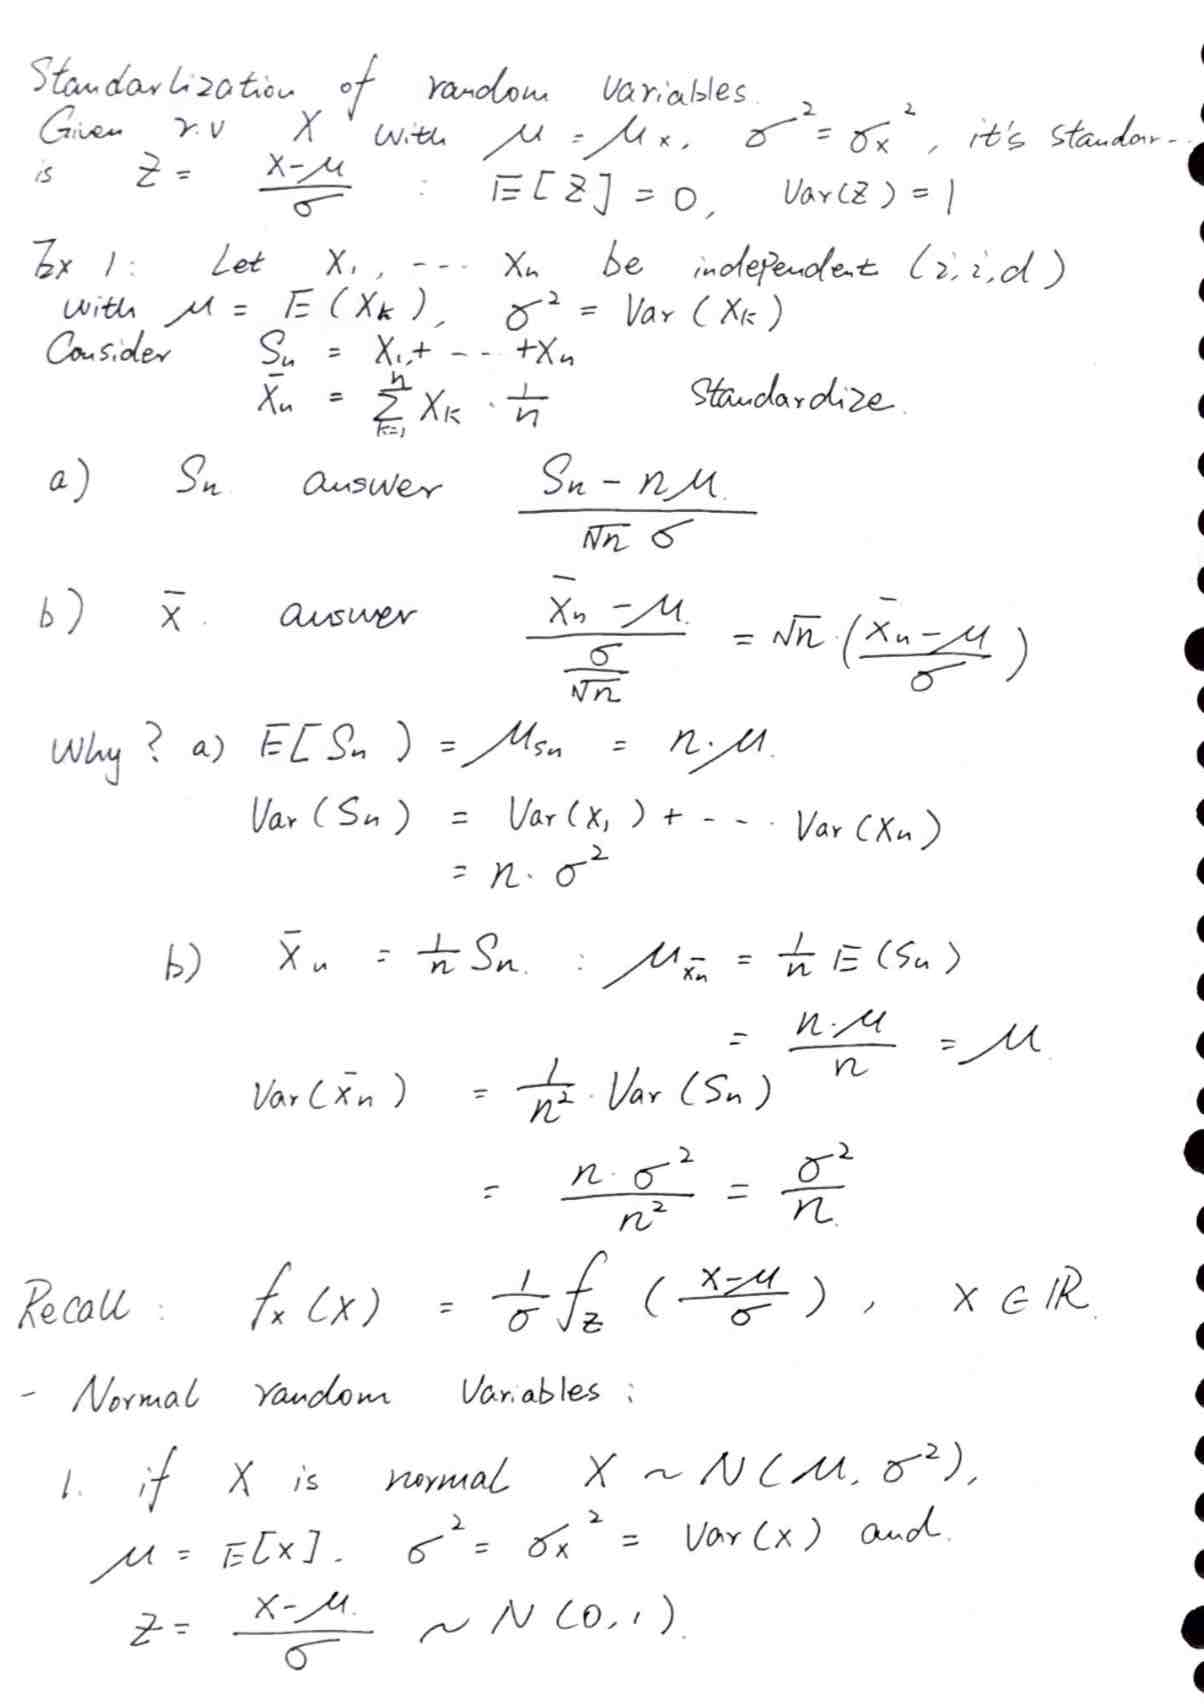 Standarlization of random variables.
Given r.v X with μ = μₓ, σ² = σₓ², it's standar-
is Z = (X-μ)/σ : E[Z] = 0, Var(Z) = 1
Ex 1: Let X₁, --- Xn be independent (i,i,d)
with μ = E(Xk), σ² = Var(Xk)
Consider Sn = X₁+ --- +Xn
X̄n = Σ_{k=1}^{n} Xk · 1/n Standardize.
a) Sn answer (Sn - nμ)/(√n σ)
b) X̄. answer (X̄n - μ)/(σ/√n) = √n·((X̄n-μ)/σ)
Why? a) E[Sn) = μ_Sn = n·μ.
Var(Sn) = Var(X₁) + --- Var(Xn)
= n·σ²
b) X̄n = 1/n Sn. : μ_X̄n = 1/n E(Sn)
= n·μ/n = μ
Var(X̄n) = 1/n² · Var(Sn)
= n·σ²/n² = σ²/n.
Recall: fx(x) = 1/σ fz((x-μ)/σ), x ∈ ℝ.
- Normal random Variables:
1. if X is normal X ~ N(μ, σ²),
μ = E[x]. σ² = σx² = Var(x) and.
Z = (X-μ)/σ ~ N(0,1).